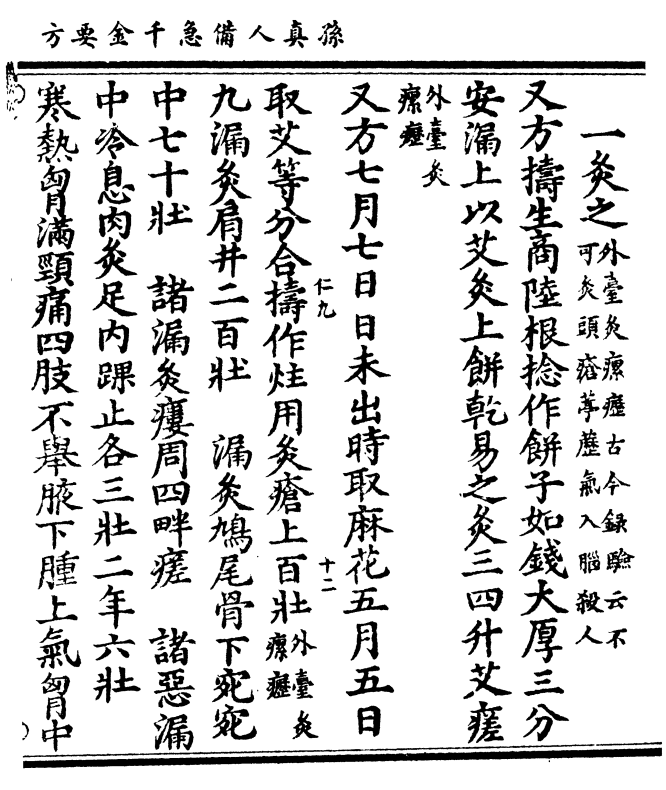 孫真人備急千金要方
一灸之外臺灸瘰癧古今録驗云不可灸頭瘡葶藶氣入腦殺人
又方擣生商陸根捻作餅子如錢大厚三分
安漏上以艾灸上餅乾易之灸三四升艾瘥
外臺灸瘰癧
又方七月七日日未出時取麻花五月五日
取艾等分合擣作炷用灸瘡上百壯外臺灸瘰癧
仁九
十二
九漏灸肩井二百壯 漏灸鳩尾骨下宛宛
中七十壯 諸漏灸瘻周四畔瘥 諸惡漏
中冷息肉灸足内踝止各三壯二年六壯
寒熱胷滿頸痛四肢不舉腋下腫上氣胷中